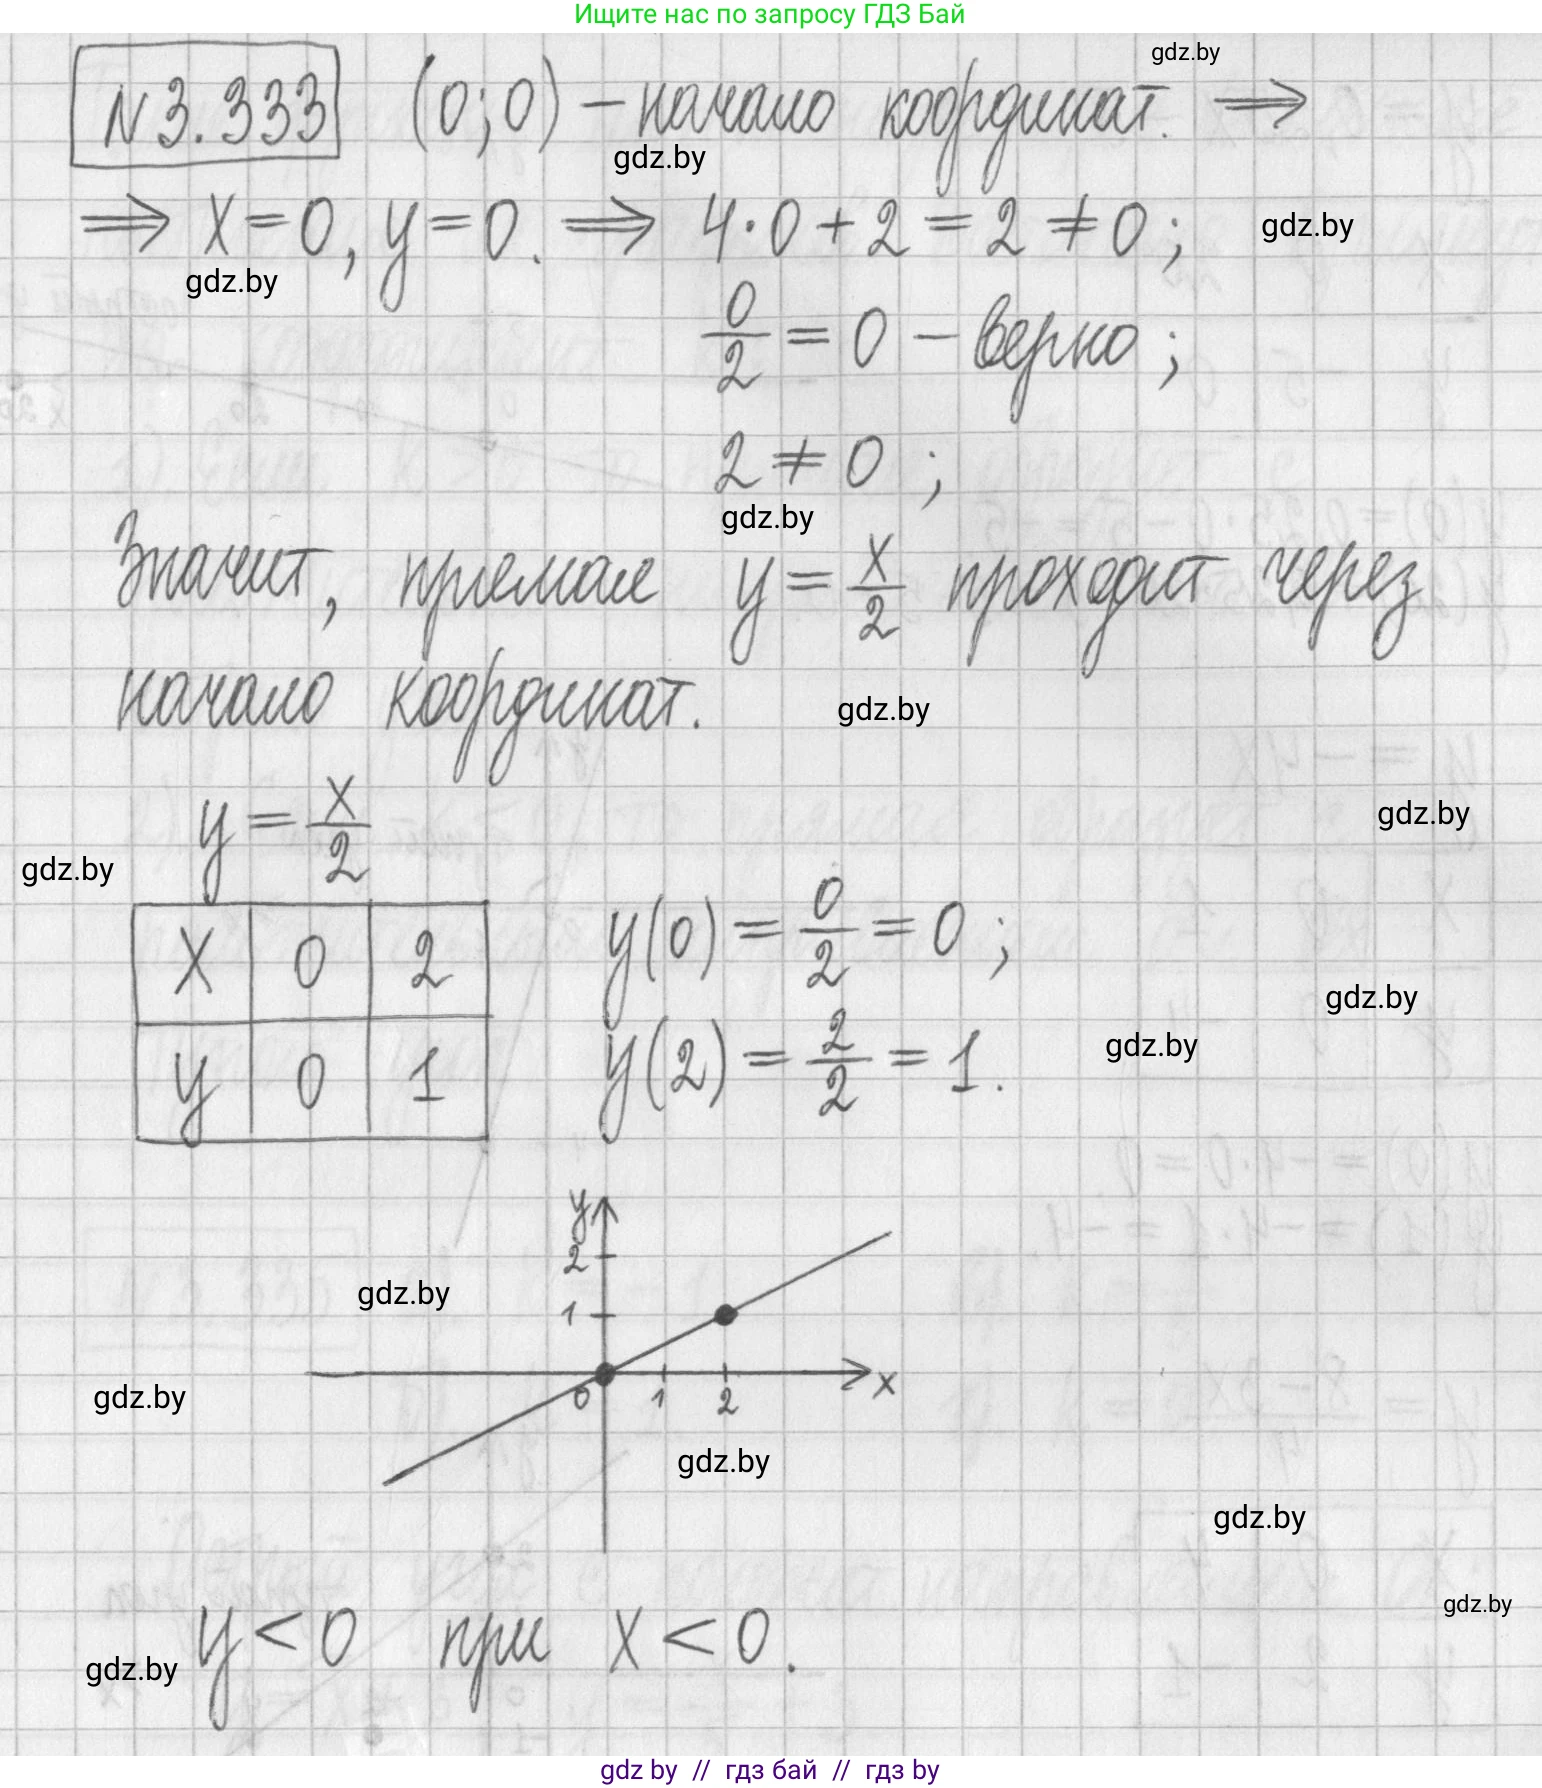 Ищите нас по запросу ГДЗ Бай
gdz.by
N3.333 (0;0) – начало координат. ⟹
gdz.by
⟹ x=0, y=0. ⟹ 4·0+2=2≠0;
gdz.by
gdz.by
0/2 = 0 – верно;
2≠0;
gdz.by
Значит, прямая y = x/2 проходит через
начало координат.
gdz.by
y = x/2
gdz.by
gdz.by
x 0 2
y(0) = 0/2 = 0;
gdz.by
y 0 1
y(2) = 2/2 = 1.
gdz.by
y
2
gdz.by
1
0 1 2 x
gdz.by
gdz.by
gdz.by
gdz.by
y<0 при x<0.
gdz.by
gdz by // гдз бай // гдз by